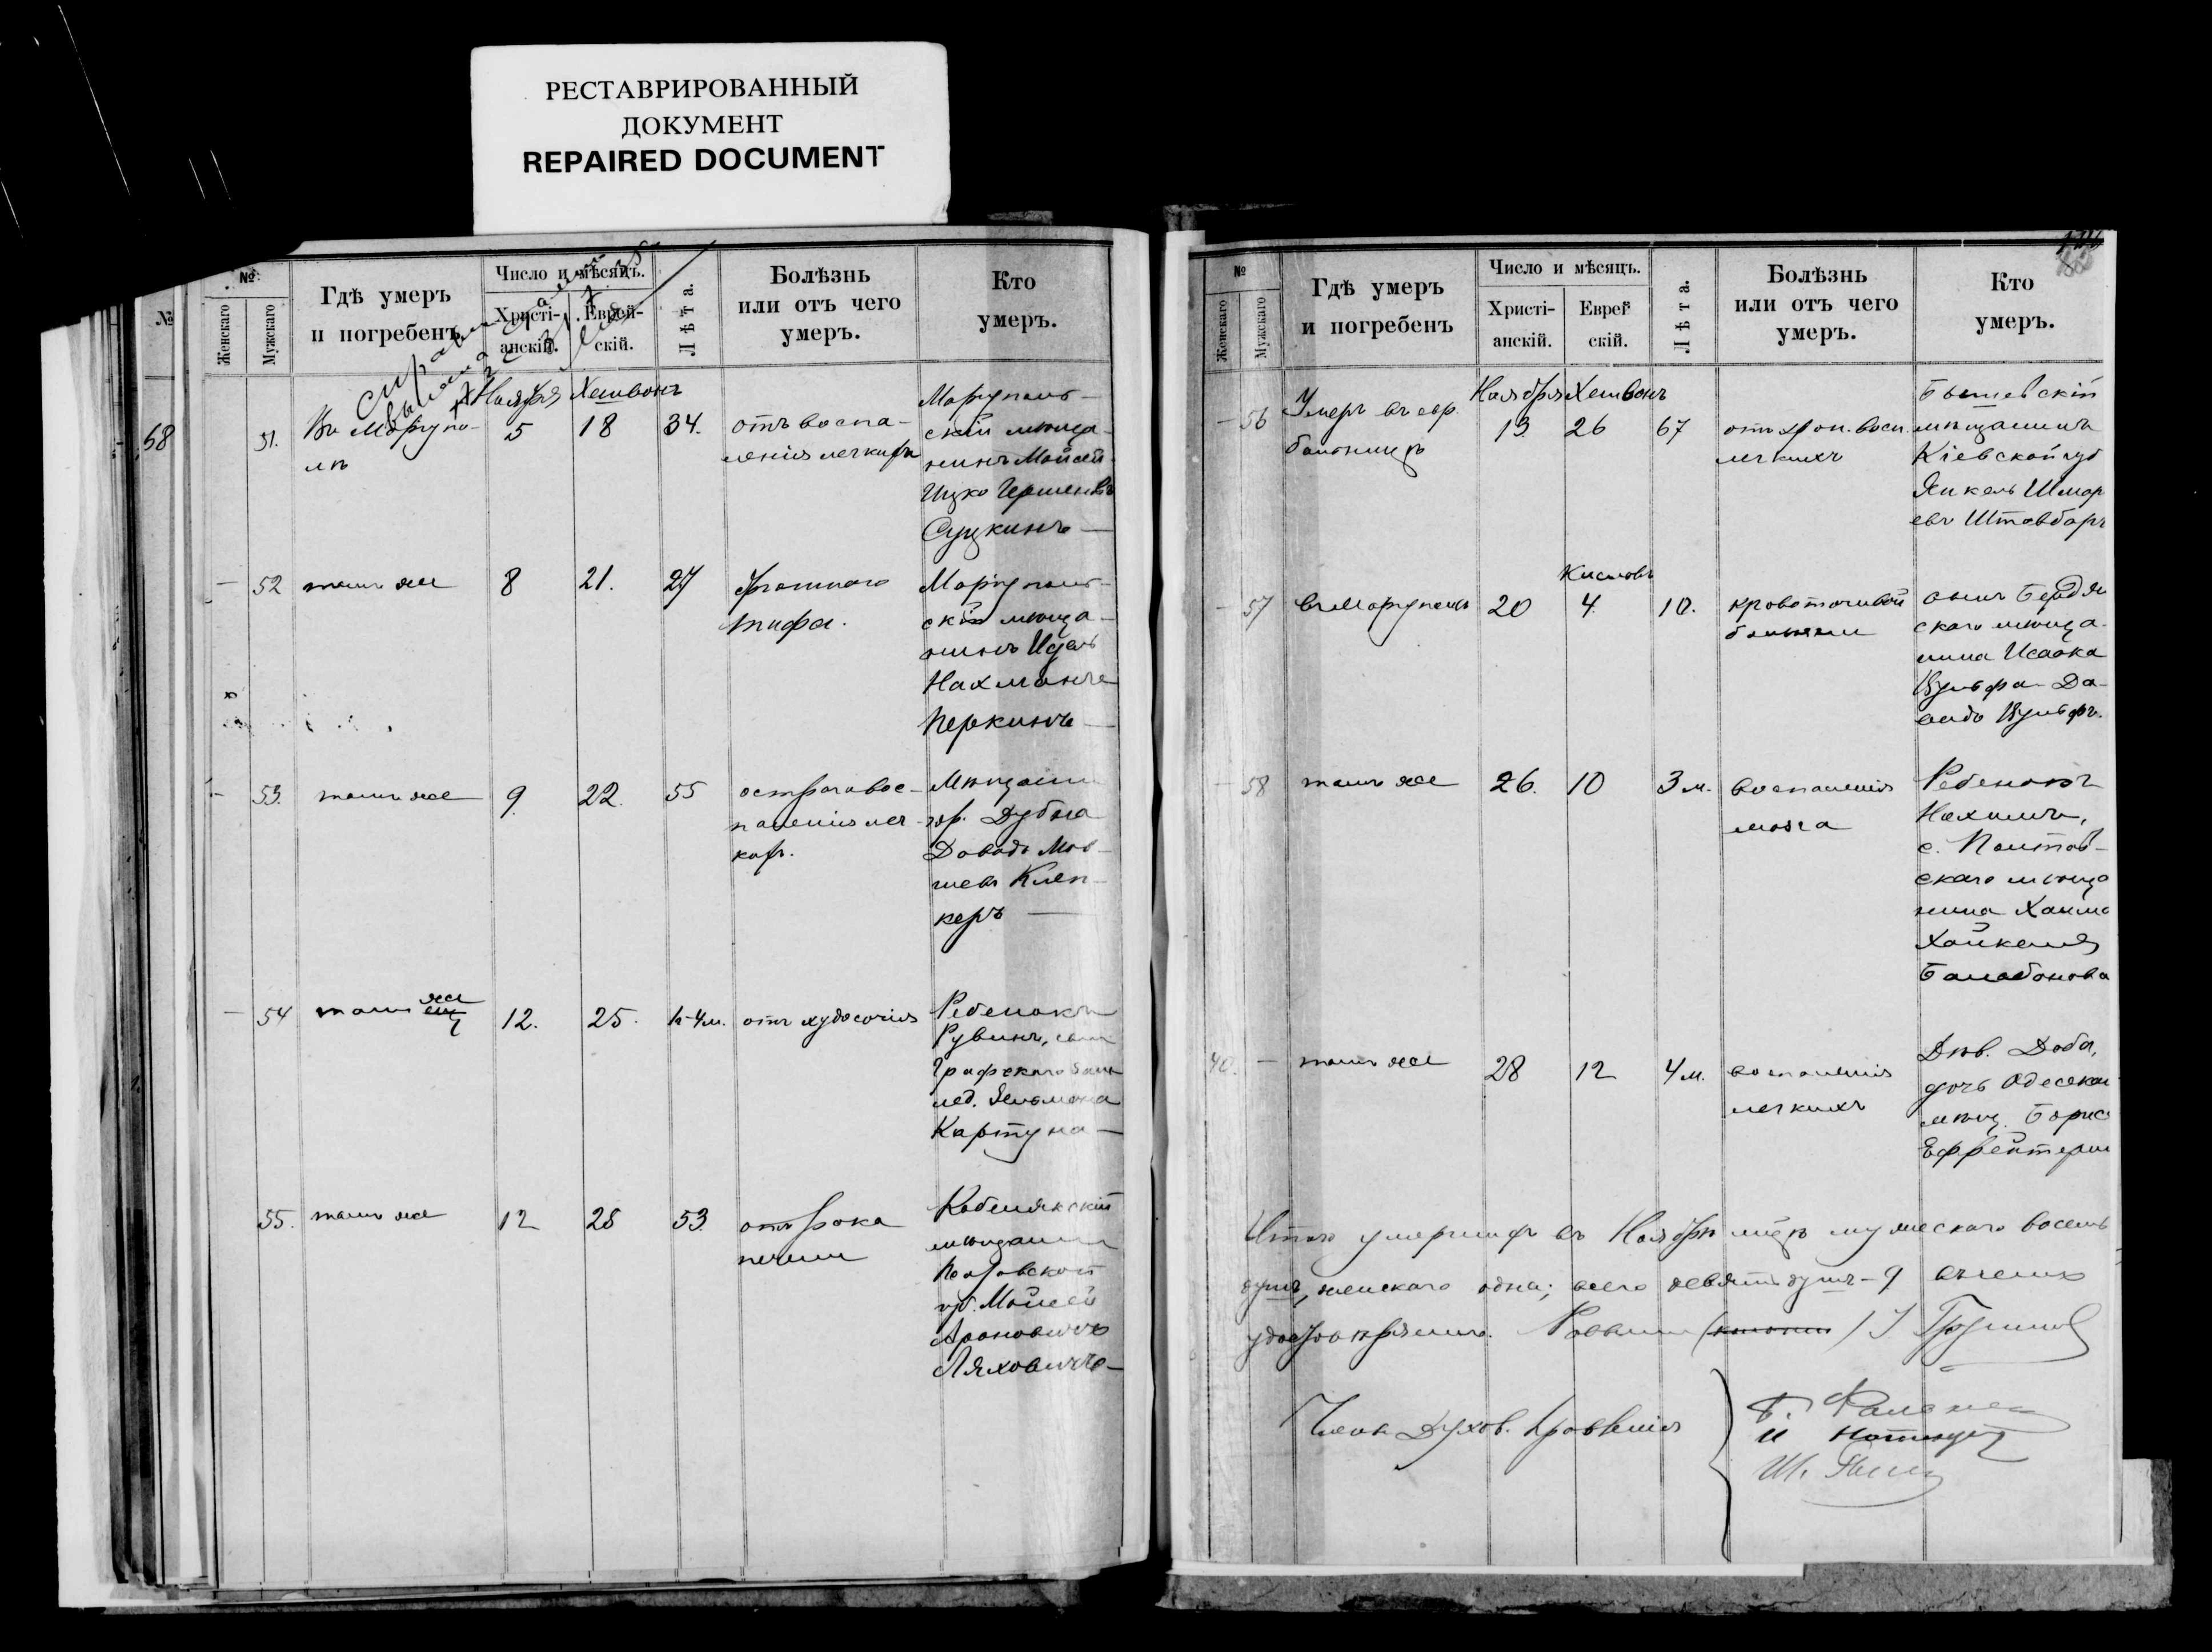 РЕСТАВРИРОВАННЫЙ
ДОКУМЕНТ
REPAIRED DOCUMENT
№
68
№
Женскаго
Мужскаго
Гдѣ умеръ
и погребенъ
Число и мѣсяцъ.
Христі-
анскій.
Еврей-
скій.
Лѣта.
Болѣзнь
или отъ чего
умеръ.
Кто
умеръ.
Ноября Хешвонъ
51.
Въ Маріупо-
лѣ
5
18
34.
отъ воспа-
ленія легкихъ
Маріуполь-
скій мѣща-
нинъ Мойсей
Ицко Гершеновъ
Суцкинъ
52
тамъ же
8
21.
27
тифа.
Маріуполь-
скій мѣща-
нинъ
Перкинъ
53.
тамъ же
9.
22.
55
остраго вос-
паленія лег-
кихъ.
Мѣщанин
гор. Дубна
Давидъ Мов-
шевъ
керъ
54
тамъ же
12.
25.
1г-4м.
отъ худосочія
Ребенокъ
Рувинъ, сын
Графскаго
Картуна
55.
тамъ же
12
25
53.
отъ рака
печени
Кобелякскій
мѣщанин
Полтавской
губ. Мойсей
Ароновичъ
Ляховичъ
№
Женскаго
Мужскаго
Гдѣ умеръ
и погребенъ
Число и мѣсяцъ.
Христі-
анскій.
Еврей-
скій.
Лѣта.
Болѣзнь
или отъ чего
умеръ.
Кто
умеръ.
Ноября Хешвонъ
56
Умеръ въ евр.
больницѣ
13.
26
67
отъ хрон. восп.
легкихъ
Бышевскій
мѣщанинъ
Кіевской губ
Янкель Шмар
евъ
Кислевъ
57
въ Маріуполѣ
20
4.
10.
кровоточивой
болѣзни
сынъ Бердян
скаго мѣща-
нина Исаака
Вульфа Да-
видъ Вульфъ.
58
тамъ же
26.
10
3 м.
воспаленія
мозга
Ребенокъ
Нахимъ,
с. Полтав-
скаго мѣща
нина Хаима
Хайкеля
Балабонова
40.
тамъ же
28
12
4 м.
воспаленія
легкихъ
Дѣв. Доба,
дочь Одесскаг
мѣщ. Борис
Итого умершихъ въ Ноябрѣ м-цѣ мужескаго восемь
душъ, женскаго одна; всего девять душъ - 9 въ чемъ
удостовѣряемъ. Раввинъ
Члены Духов. Правленія